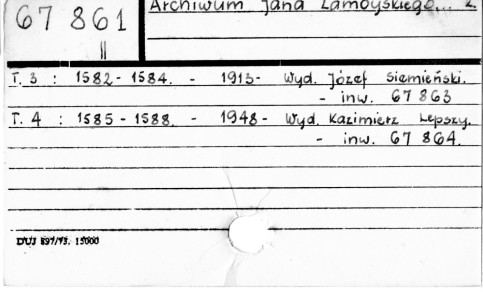 Archiwum Jana Zamoyskiego... 2.
67 861
II
T. 3 : 1582 - 1584. - 1913 - Wyd. Józef Siemieński.
- inw. 67 863
T. 4 : 1585 - 1588. - 1948 - Wyd. Kazimierz Lepszy.
- inw. 67 864.
DUJ 897/75. 15000